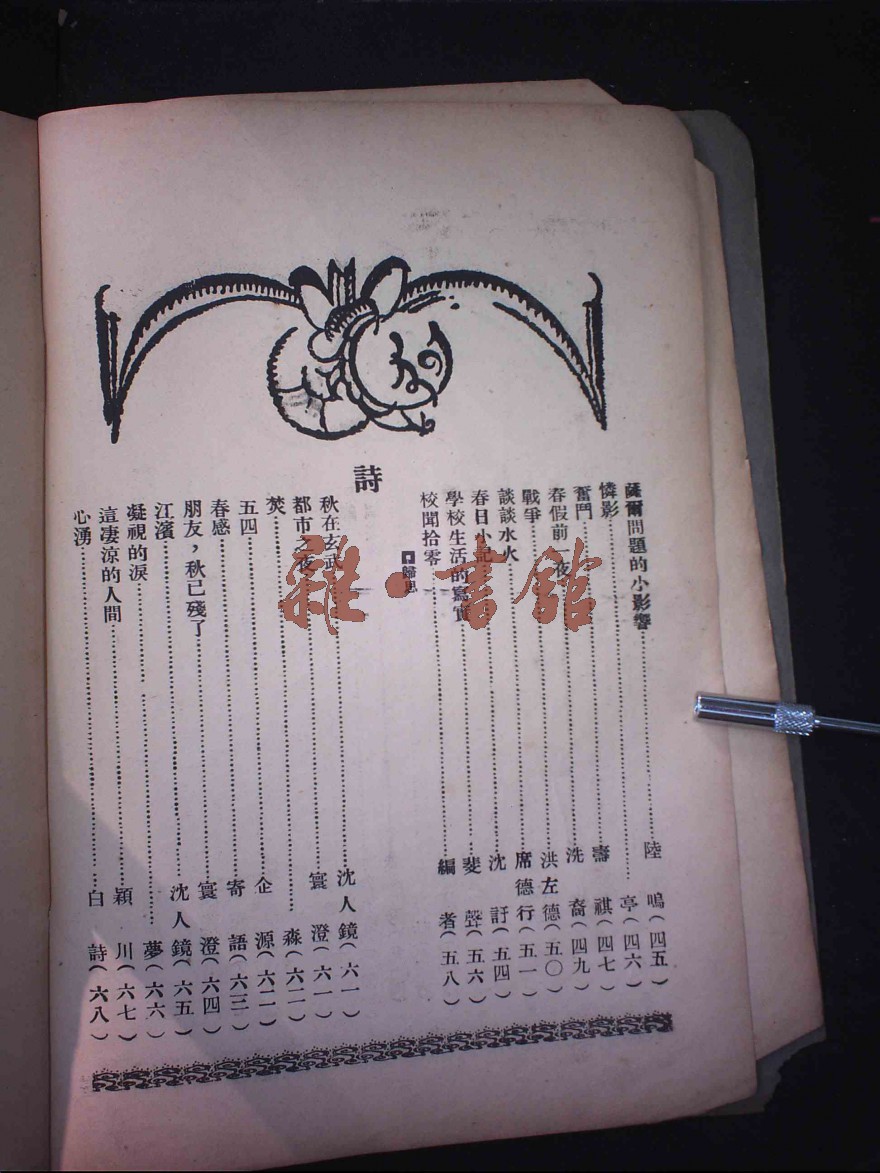 薩爾問題的小影響……陸鳴(四五)
憐影……亭(四六)
奮鬥……壽祺(四七)
春假前一夜……洗裔(四九)
戰爭……洪左德(五〇)
談談水火……席德行(五一)
春日小記……沈訏(五四)
學校生活的寫實……斐聲(五六)
校聞拾零……編者(五八)
詩
秋在玄武……沈人鏡(六一)
都市之夜……寰澄(六一)
焚……森(六二)
五四……企源(六二)
春感……寄語(六三)
朋友，秋已殘了……寰澄(六四)
江濱……沈人鏡(六五)
凝視的淚……夢(六六)
這淒涼的人間……穎川(六七)
心湧……白詩(六八)
雜·書館